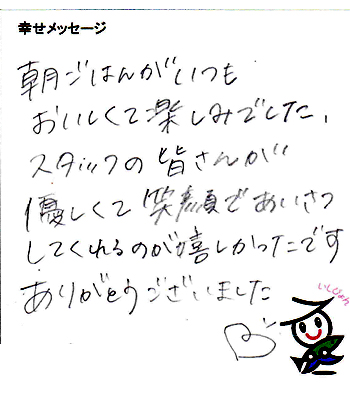 幸せメッセージ
朝ごはんがいつも
おいしくて楽しみでした、
スタッフの皆さんが
優しくて笑顔であいさつ
してくれるのが嬉しかったです
ありがとうございました